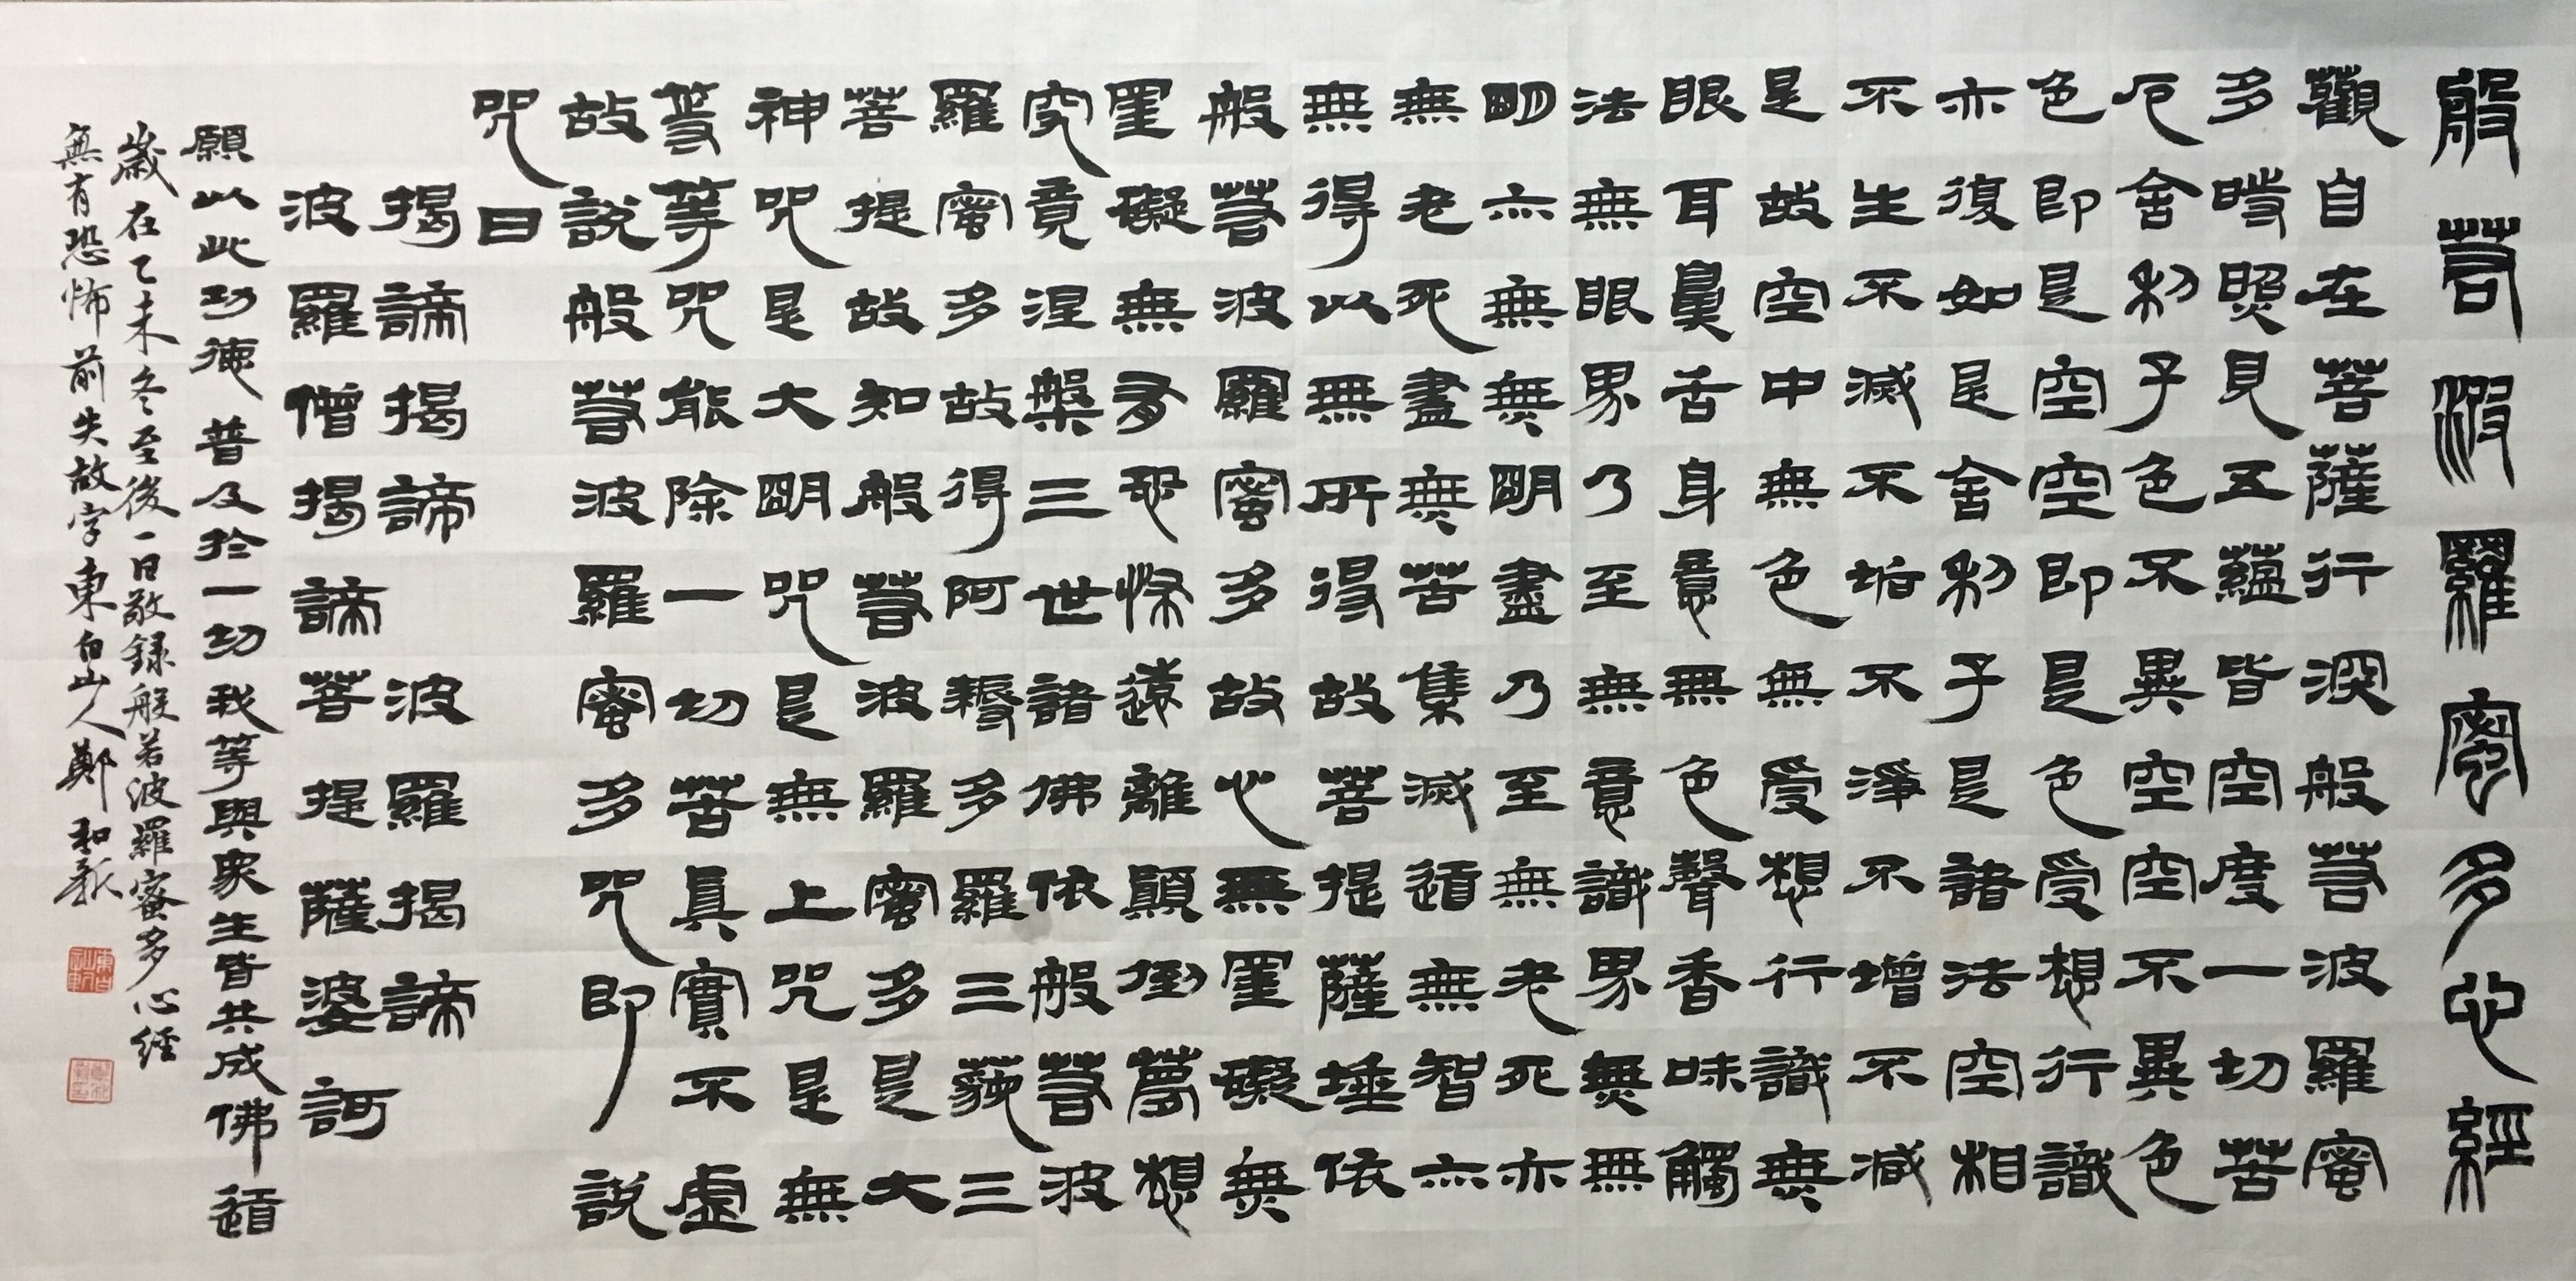 般若波羅蜜多心經
觀自在菩薩行深般若波羅蜜
多時照見五蘊皆空度一切苦
厄舍利子色不異空空不異色
色即是空空即是色受想行識
亦復如是舍利子是諸法空相
不生不滅不垢不淨不增不減
是故空中無色無受想行識無
眼耳鼻舌身意無色聲香味觸
法無眼界乃至無意識界無無
明亦無無明盡乃至無老死亦
無老死盡無苦集滅道無智亦
無得以無所得故菩提薩埵依
般若波羅蜜多故心無罣礙無
罣礙無有恐怖遠離顛倒夢想
究竟涅槃三世諸佛依般若波
羅蜜多故得阿耨多羅三藐三
菩提故知般若波羅蜜多是大
神咒是大明咒是無上咒是無
等等咒能除一切苦真實不虛
故說般若波羅蜜多咒即說
咒曰
揭諦揭諦波羅揭諦
波羅僧揭諦菩提薩婆訶
願以此功德普及於一切我等與眾生皆共成佛道
歲在乙未冬至後一日敬録般若波羅蜜多心経
無有恐怖前失故字東白山人鄭和新